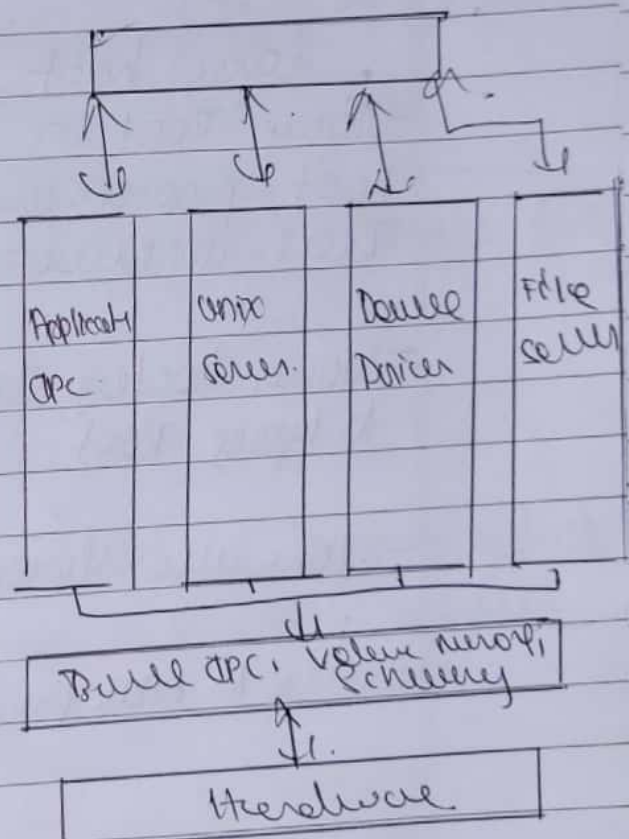 Applicati
IPC
Unix
Server.
Device
Driver
File
Server
Basic IPC, Virtual memory,
Scheduling
Hardware